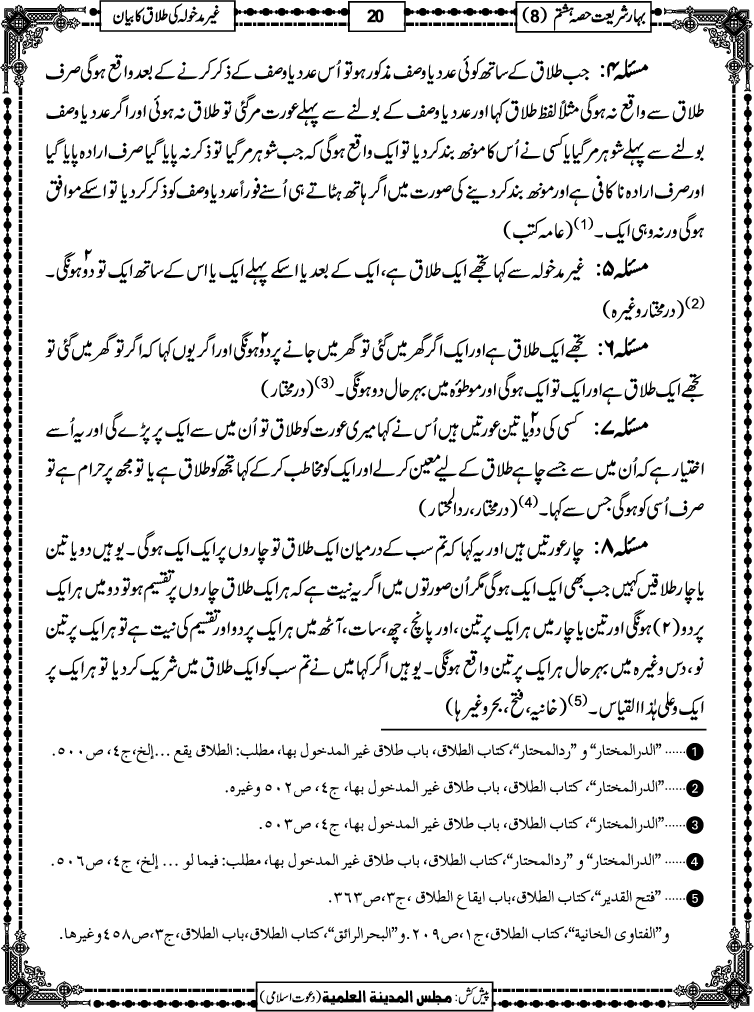 بہار شریعت حصہ ہشتم (8)
20
غیر مدخولہ کی طلاق کا بیان
مسئلہ ۴: جب طلاق کے ساتھ کوئی عدد یا وصف مذکور ہو تو اُس عدد یا وصف کے ذکر کرنے کے بعد واقع ہوگی صرف
طلاق سے واقع نہ ہوگی مثلاً لفظ طلاق کہا اور عدد یا وصف کے بولنے سے پہلے عورت مر گئی تو طلاق نہ ہوئی اور اگر عدد یا وصف
بولنے سے پہلے شوہر مر گیا یا کسی نے اُس کا مونھ بند کر دیا تو ایک واقع ہوگی کہ جب شوہر مر گیا تو ذکر نہ پایا گیا صرف ارادہ پایا گیا
اور صرف ارادہ ناکافی ہے اور مونھ بند کر دینے کی صورت میں اگر ہاتھ ہٹاتے ہی اُسنے فوراً عدد یا وصف کو ذکر کر دیا تو اسکے موافق
ہوگی ورنہ وہی ایک۔(1) (عامہ کتب)
مسئلہ ۵: غیر مدخولہ سے کہا تجھے ایک طلاق ہے، ایک کے بعد یا اسکے پہلے ایک یا اس کے ساتھ ایک تو دو۲ ہونگی۔
(2) (درمختار وغیرہ)
مسئلہ ۶: تجھے ایک طلاق ہے اور ایک اگر گھر میں گئی تو گھر میں جانے پر دو۲ ہونگی اور اگر یوں کہا کہ اگر تو گھر میں گئی تو
تجھے ایک طلاق ہے اور ایک تو ایک ہوگی اور موطؤہ میں بہر حال دو ہونگی۔(3) (درمختار)
مسئلہ ۷: کسی کی دو۲ یا تین عورتیں ہیں اُس نے کہا میری عورت کو طلاق تو اُن میں سے ایک پر پڑے گی اور یہ اُسے
اختیار ہے کہ اُن میں سے جسے چاہے طلاق کے لیے معین کر لے اور ایک کو مخاطب کر کے کہا تجھ کو طلاق ہے یا تو مجھ پر حرام ہے تو
صرف اُسی کو ہوگی جس سے کہا۔(4) (درمختار، ردالمحتار)
مسئلہ ۸: چار عورتیں ہیں اور یہ کہا کہ تم سب کے درمیان ایک طلاق تو چاروں پر ایک ایک ہوگی۔ یوہیں دو یا تین
یا چار طلاقیں کہیں جب بھی ایک ایک ہوگی مگر اُن صورتوں میں اگر یہ نیت ہے کہ ہر ایک طلاق چاروں پر تقسیم ہو تو دو میں ہر ایک
پر دو (۲) ہونگی اور تین یا چار میں ہر ایک پر تین، اور پانچ، چھ، سات، آٹھ میں ہر ایک پر دو اور تقسیم کی نیت ہے تو ہر ایک پر تین
نو، دس وغیرہ میں بہر حال ہر ایک پر تین واقع ہونگی۔ یوہیں اگر کہا میں نے تم سب کو ایک طلاق میں شریک کر دیا تو ہر ایک پر
ایک وعلی ہٰذا القیاس۔(5) (خانیہ، فتح، بحر وغیرہا)
1 ......”الدرالمختار“ و ”ردالمحتار“،کتاب الطلاق، باب طلاق غیر المدخول بھا، مطلب: الطلاق یقع ...إلخ،ج٤، ص٥٠٠.
2 ......”الدرالمختار“، کتاب الطلاق، باب طلاق غیر المدخول بھا، ج٤، ص٥٠٢ وغیرہ.
3 ......”الدرالمختار“، کتاب الطلاق، باب طلاق غیر المدخول بھا، ج٤، ص٥٠٣.
4 ......”الدرالمختار“ و ”ردالمحتار“،کتاب الطلاق، باب طلاق غیر المدخول بھا، مطلب: فیما لو ... إلخ، ج٤، ص٥٠٦.
5 ......”فتح القدیر“،کتاب الطلاق،باب ایقاع الطلاق ،ج٣،ص٣٦٣.
و”الفتاوی الخانیة“، کتاب الطلاق، ج١، ص٢٠٩.و”البحرالرائق“،کتاب الطلاق،باب الطلاق،ج٣،ص٤٥٨وغیرھا.
پیش کش: مجلس المدینة العلمیة (دعوت اسلامی)